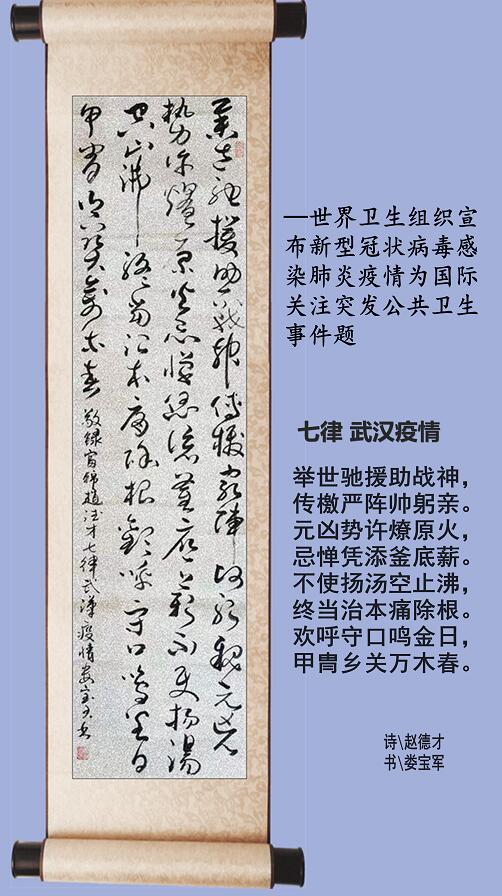 举世驰援助战神传檄严阵帅躬亲元凶
势许燎原火忌惮凭添釜底薪不使扬汤
空止沸终当治本痛除根欢呼守口鸣金日
甲胄乡关万木春 敬録富锦赵德才七律武漢疫情娄宝军书
—世界卫生组织宣
布新型冠状病毒感
染肺炎疫情为国际
关注突发公共卫生
事件题
七律 武汉疫情
举世驰援助战神，
传檄严阵帅躬亲。
元凶势许燎原火，
忌惮凭添釜底薪。
不使扬汤空止沸，
终当治本痛除根。
欢呼守口鸣金日，
甲胄乡关万木春。
诗\赵德才
书\娄宝军